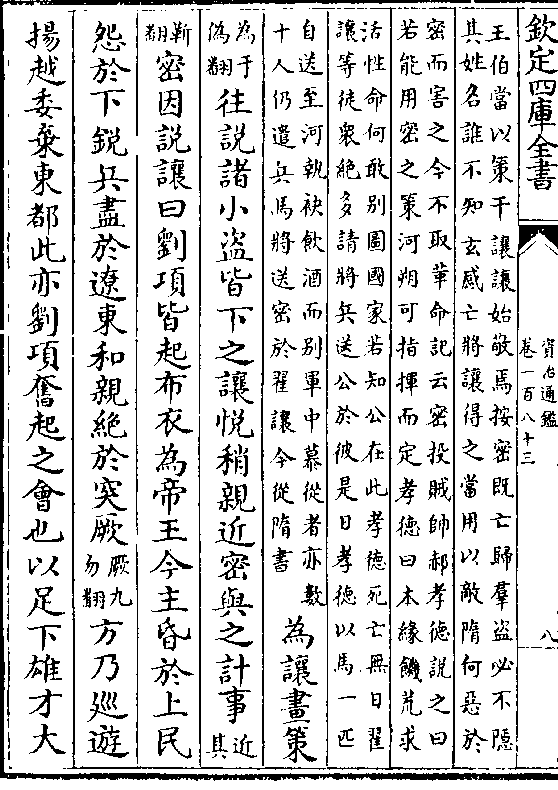 欽定四庫全書
資治通鑑
卷一百八十三
八
王伯當以策干讓讓始敬焉按密既亡歸羣盜必不隱
其姓名誰不知玄感亡將讓得之當用以敵隋何惡於
密而害之今不取革命記云密投賊帥郝孝德說之曰
若能用密之策河朔可指揮而定孝德曰本緣饑荒求
活性命何敢别圖國家若知公在此孝德死亡無日翟
讓等徒衆絶多請將兵送公於彼是日孝德以馬一匹
自送至河執袂飲酒而别軍中慕從者亦數
十人仍遣兵馬將送密於翟讓今從隋書
為讓畫策
為于
偽翻
往說諸小盜皆下之讓悅稍親近密與之計事
近
其
靳
翻
密因說讓曰劉項皆起布衣為帝王今主昏於上民
怨於下銳兵盡於遼東和親絶於突厥
厥九
勿翻
方乃廵遊
揚越委棄東都此亦劉項奮起之會也以足下雄才大